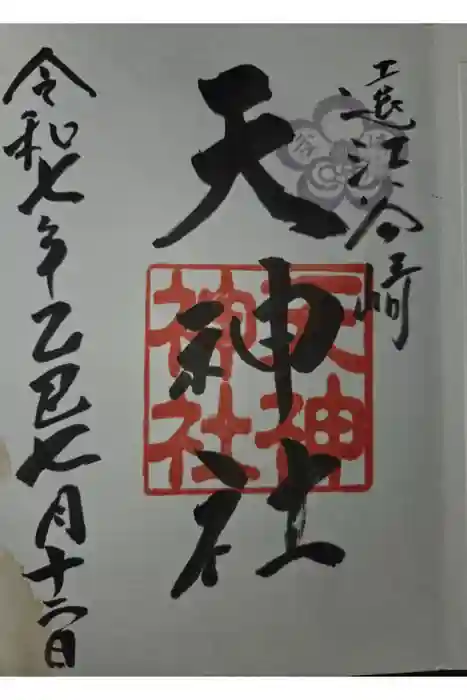 遠江谷崎
天神社
天神
神社
令和七年乙巳七月十二日